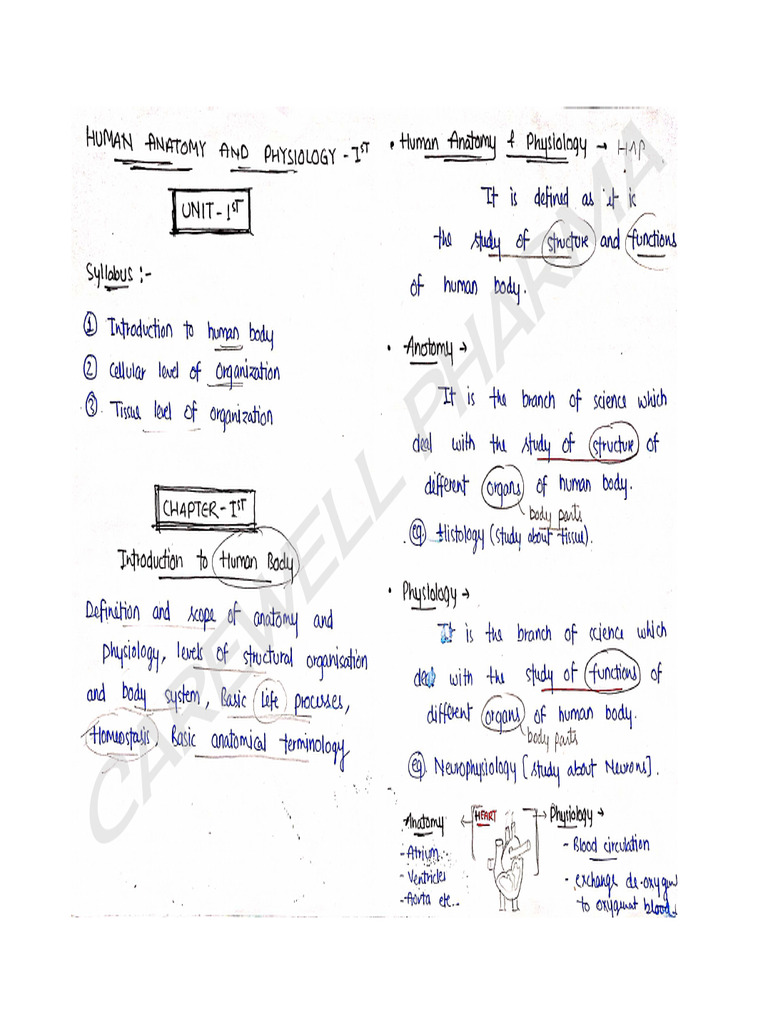 HUMAN ANATOMY AND PHYSIOLOGY - Iˢᵀ
UNIT - Iˢᵀ
Syllabus :-
① Introduction to human body
② Cellular level of organization
③ Tissue level of organization
CHAPTER - Iˢᵀ
Introduction to Human Body
Definition and scope of anatomy and
physiology, levels of structural organisation
and body system, Basic life processes,
Homeostasis, Basic anatomical terminology
• Human Anatomy & Physiology → HAP
It is defined as it is
the study of structure and functions
of human body.
• Anatomy →
It is the branch of science which
deal with the study of structure of
different organs of human body.
body parts
eg. Histology (study about tissue).
• Physiology →
It is the branch of science which
deal with the study of functions of
different organs of human body.
body parts
eg. Neurophysiology [study about Neurons].
Anatomy ← HEART → Physiology →
- Atrium
- Ventricles
- Aorta etc...
- Blood circulation
- exchange de-oxygen
to oxygenat blood
CAREWELL PHARMA